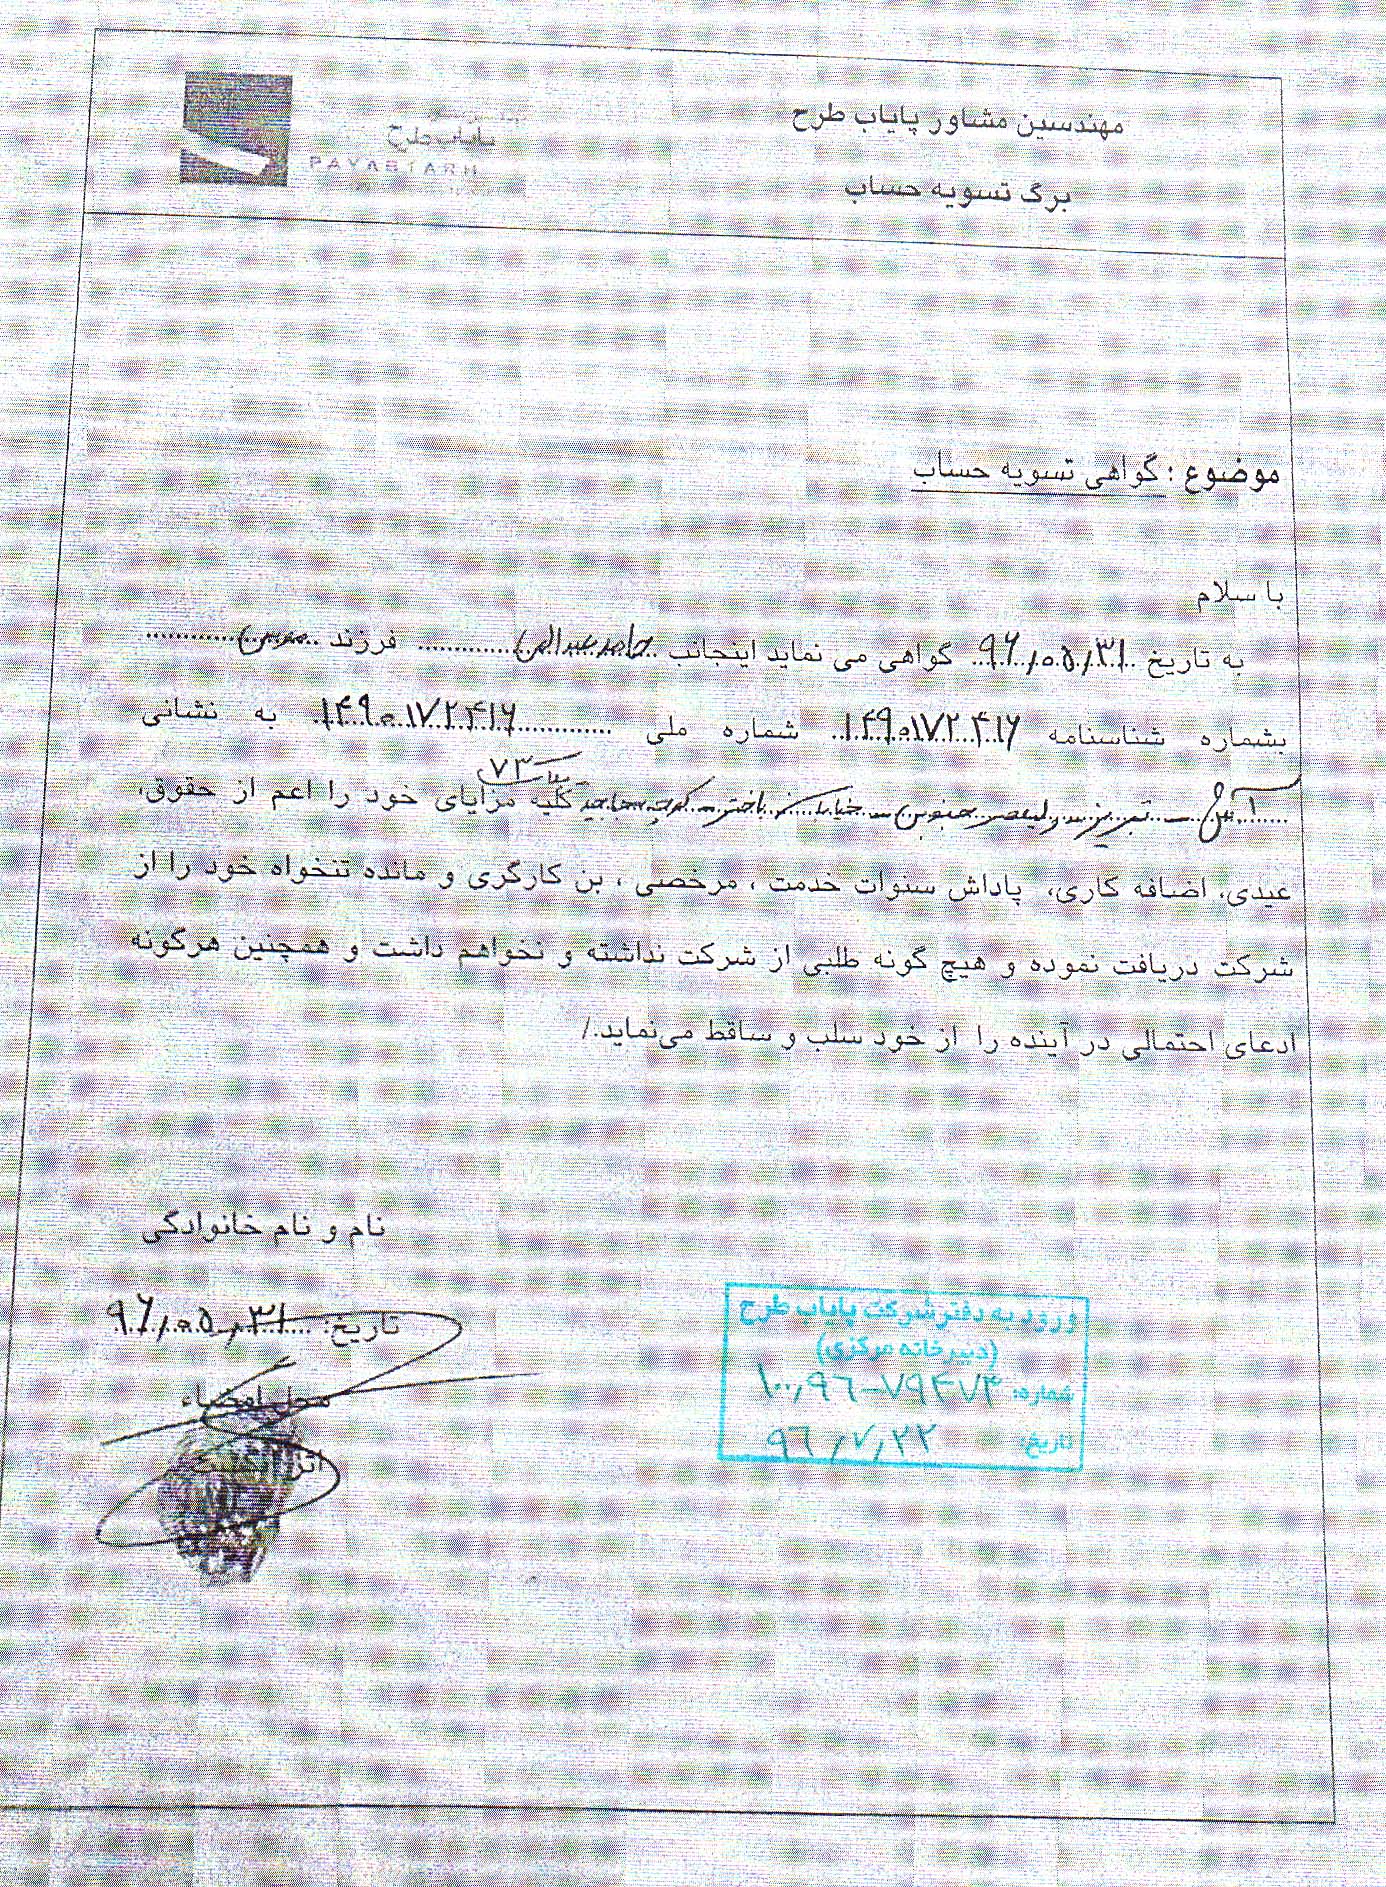 مهندسین مشاور پایاب طرح
برگ تسویه حساب
پایاب طرح
PAYABTARH
موضوع : گواهی تسویه حساب
با سلام
به تاریخ ۹۶/۰۵/۳۱ گواهی می نماید اینجانب حامد فرزند
بشماره شناسنامه ۱۴۹۰۱۷۲۴۱۶ شماره ملی ۱۴۹۰۱۷۲۴۱۶ به نشانی
پلاک ۷۳
آ.ش - تبریز - ولیعصر جنوبی - خیابان باختر - کوچه کلیه مزایای خود را اعم از حقوق،
عیدی، اضافه کاری، پاداش سنوات خدمت ، مرخصی ، بن کارگری و مانده تنخواه خود را از
شرکت دریافت نموده و هیچ گونه طلبی از شرکت نداشته و نخواهم داشت و همچنین هرگونه
ادعای احتمالی در آینده را از خود سلب و ساقط می‌نماید./
نام و نام خانوادگی
تاریخ: ۹۶/۰۵/۳۱
محل امضاء
اثر انگشت
ورود به دفتر شرکت پایاب طرح
(دبیرخانه مرکزی)
شماره: ۱۰۰/۹۶-۷۹۴۷۳
تاریخ: ۹۶/۷/۲۲